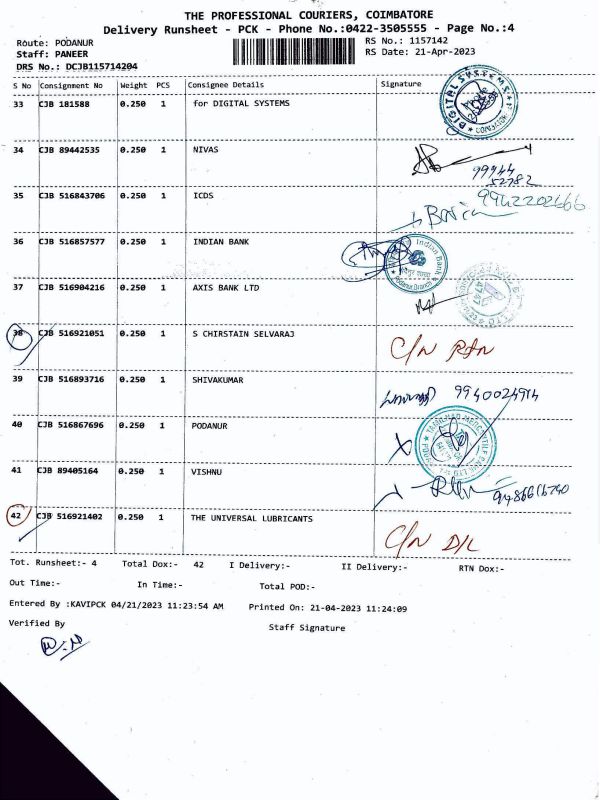 THE PROFESSIONAL COURIERS, COIMBATORE
Delivery Runsheet - PCK - Phone No.:0422-3505555 - Page No.:4
Route: PODANUR
RS No.: 1157142
Staff: PANEER
RS Date: 21-Apr-2023
DRS No.: DCJB115714204
S No Consignment No Weight PCS Consignee Details Signature
33 CJB 181588 0.250 1 for DIGITAL SYSTEMS
DIGITAL SYSTEMS
34 CJB 89442535 0.250 1 NIVAS
99944
52782
35 CJB 516843706 0.250 1 ICDS
9942202666
36 CJB 516857577 0.250 1 INDIAN BANK
Indian Bank
Podanur Branch
37 CJB 516904216 0.250 1 AXIS BANK LTD
38 CJB 516921051 0.250 1 S CHIRSTAIN SELVARAJ
C/N
39 CJB 516893716 0.250 1 SHIVAKUMAR
9940024914
40 CJB 516867696 0.250 1 PODANUR
TAMILNAD MERCANTILE BANK LTD
41 CJB 89405164 0.250 1 VISHNU
42 CJB 516921402 0.250 1 THE UNIVERSAL LUBRICANTS
C/N D/L
Tot. Runsheet:- 4 Total Dox:- 42 I Delivery:- II Delivery:- RTN Dox:-
Out Time:- In Time:- Total POD:-
Entered By :KAVIPCK 04/21/2023 11:23:54 AM Printed On: 21-04-2023 11:24:09
Verified By Staff Signature